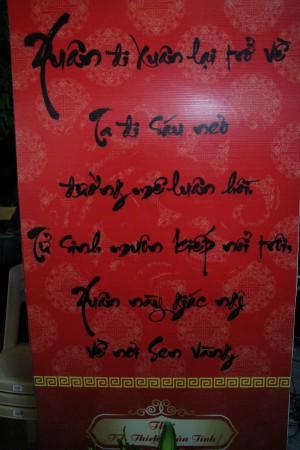 Xuân đi Xuân lại trở về
Ta đi sáu nẻo
đường mê luân hồi.
Tử sinh muôn kiếp nổi trôi,
Xuân này giác ngộ
về nơi Sen Vàng